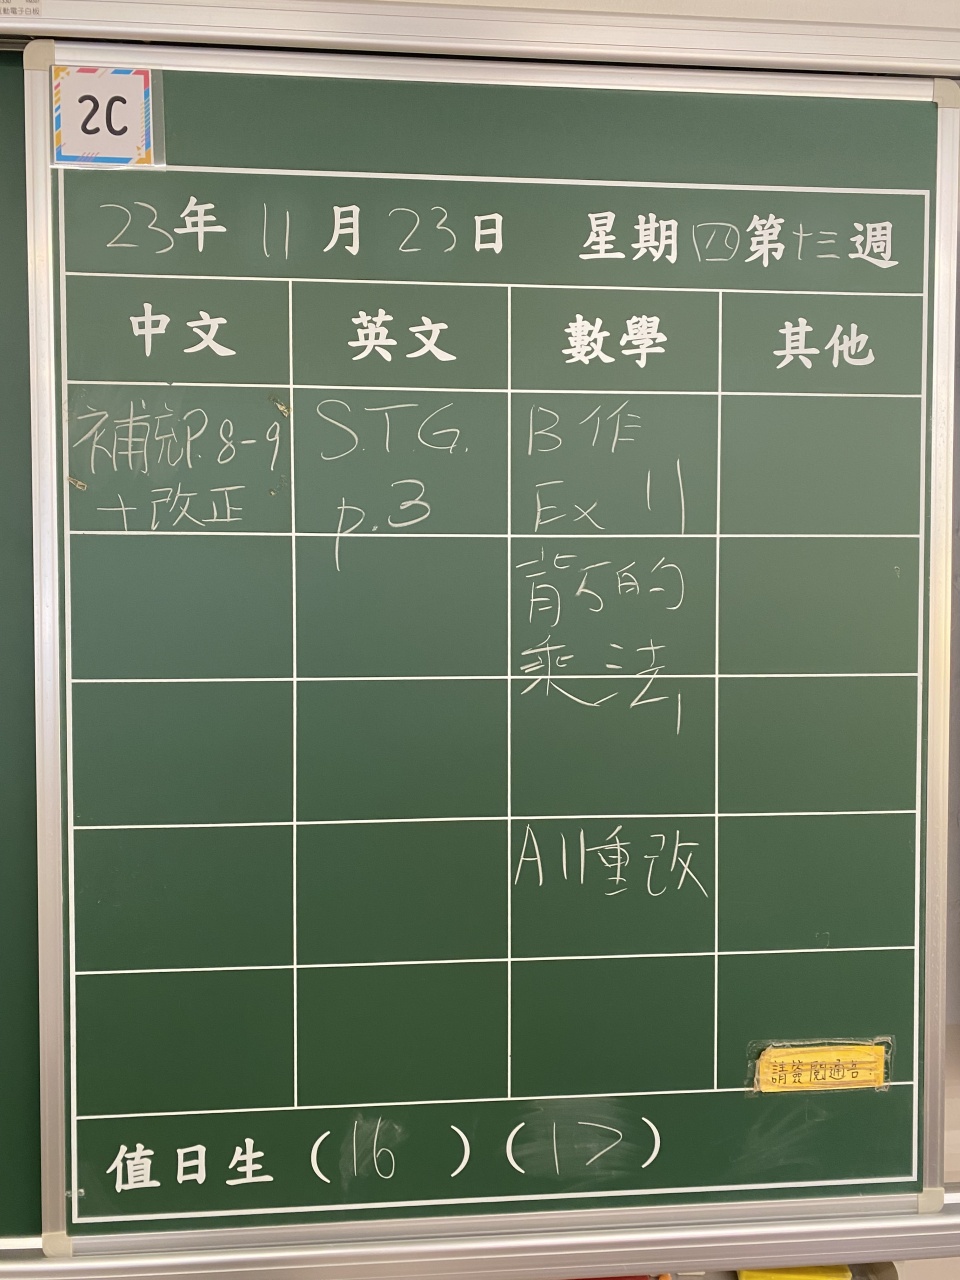 動電子白板
2C
23年 11月 23日 星期四第十三週
中文 英文 數學 其他
補充P.8-9
+改正
S.T.G.
p.3
B作
Ex 11
背5的
乘法
A11重改
請簽閱通告!
值日生 (16) (17)